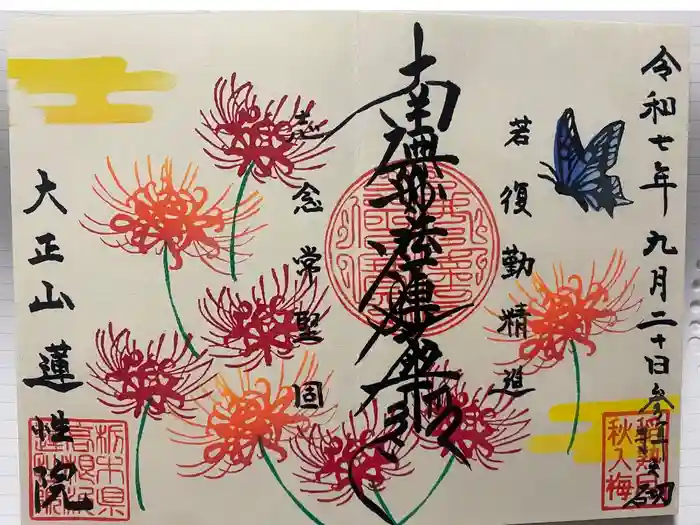 令和七年九月二十日
若復勤精進
南無妙法蓮華経
志念常堅固
大正山蓮性院
栃木県